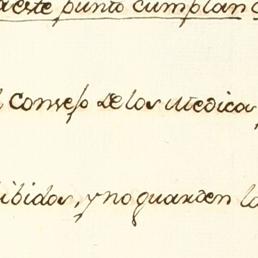 este punto cumplan
Consejo de los Medicos
bibidas, y no guarden lo